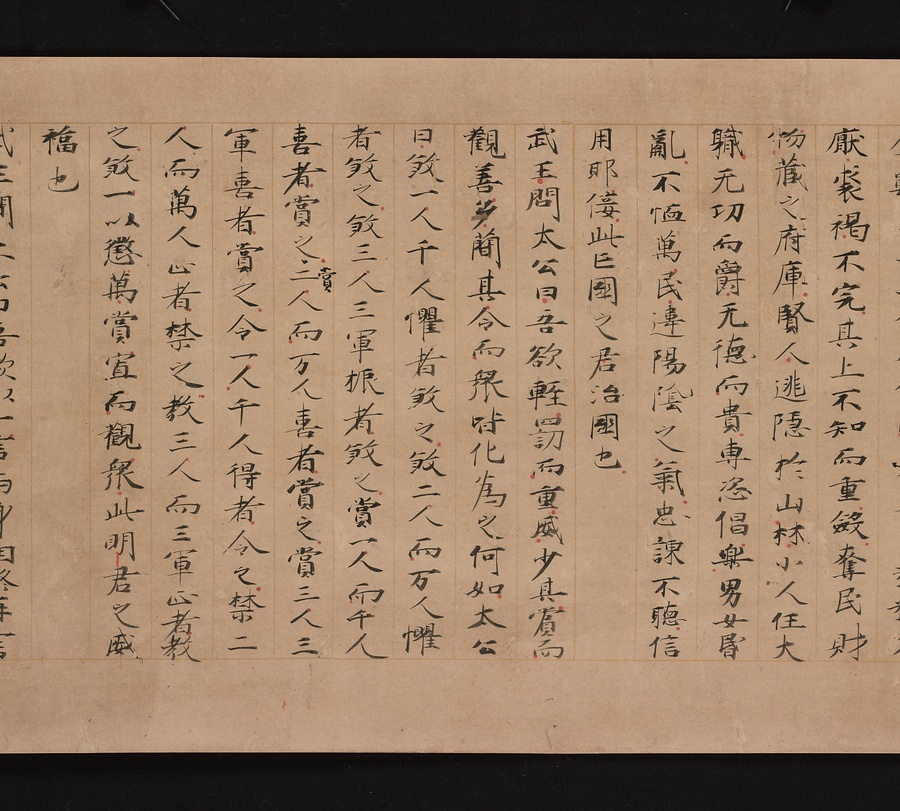 厭裘褐不完其上不知而重斂奪民財
物藏之府庫賢人逃隱於山林小人任大
職无功而爵无德而貴專恣倡樂男女昏
亂不恤萬民違陽陰之氣忠諫不聽信
用耶佞此亡國之君治國也
武王問太公曰吾欲輕罰而重威少其賞而
觀善多蕳其令而衆皆化為之何如太公
曰煞一人千人懼者煞之煞二人而万人懼
者煞之煞三人三軍振者煞之賞一人而千人
喜者賞之賞二人而万人喜者賞之賞三人三
軍喜者賞之令一人千人得者令之禁二
人而萬人止者禁之教三人而三軍正者教
之煞一以懲萬賞寘而觀衆此明君之威
福也